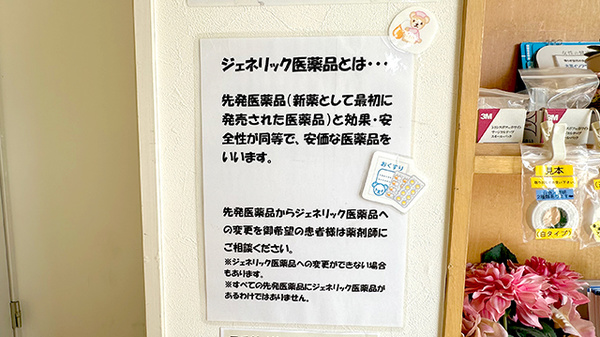 ジェネリック医薬品とは・・・
先発医薬品(新薬として最初に
発売された医薬品)と効果・安
全性が同等で、安価な医薬品を
いいます。
おくすり
先発医薬品からジェネリック医薬品へ
の変更を御希望の患者様は薬剤師に
ご相談ください。
※ジェネリック医薬品への変更ができない場合
もあります。
※すべての先発医薬品にジェネリック医薬品が
あるわけではありません。
3M
3M
見本
(白タイプ)